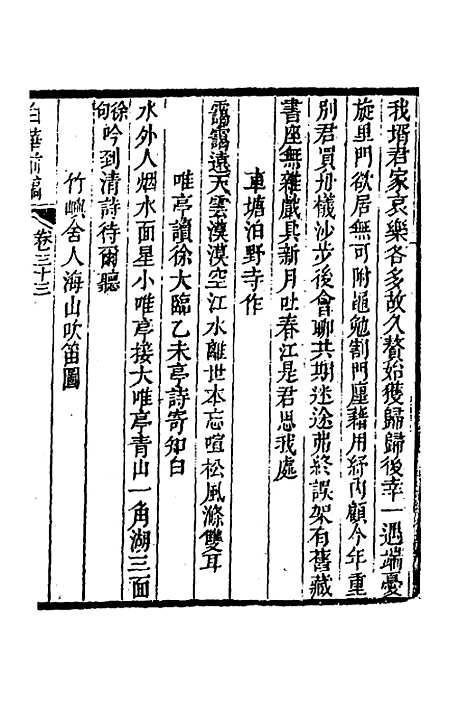 我壻君家哀樂各多故久贅始獲歸歸後幸一過端憂
旋里門欲居無可附黽勉割門廛藉用紓內顧今年重
別君買舟檥沙步後會聊共期迷途弗終誤架有舊藏
書座無雜戲具新月吐春江是君思我處
車塘泊野寺作
靄靄遠天雲漠漠空江水離世本忘喧松風滌雙耳
唯亭讀徐大臨乙未亭詩寄卻白
水外人烟水面星小唯亭接大唯亭青山一角湖三面
徐句吟到清詩待爾聽
竹嶼舍人海山吹笛圖
白華前稿
卷三十三